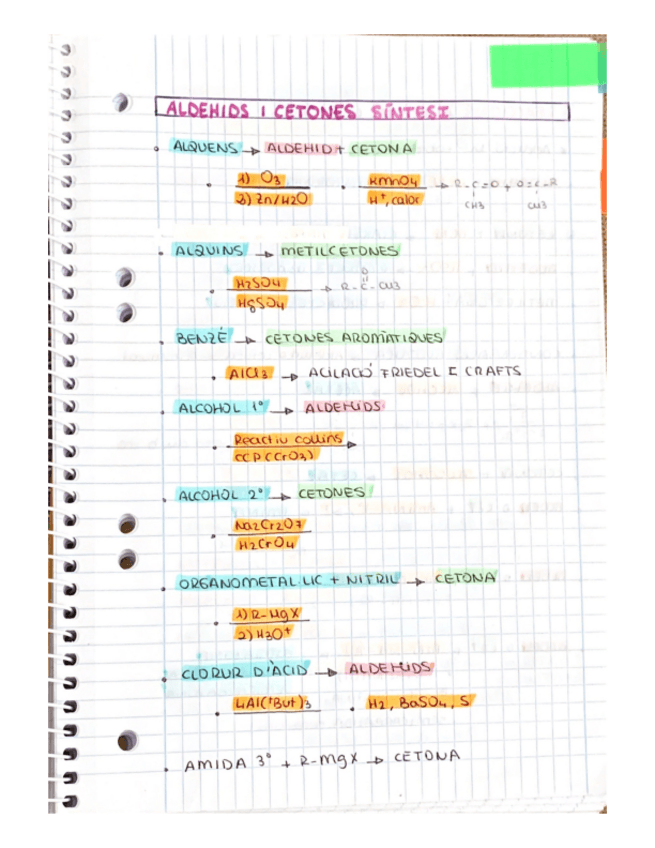 ALDEHIDS I CETONES SÍNTESI
• ALQUENS → ALDEHID + CETONA
• 1) O3 • KMnO4 → R-C=O + O=C-R
2) Zn/H2O H+, calor CH3 CH3
• ALQUINS → METILCETONES
O
• H2SO4 → R-C-CH3
HgSO4
• BENZÉ → CETONES AROMÀTIQUES
• AlCl3 → ACILACIÓ FRIEDEL I CRAFTS
• ALCOHOL 1º → ALDEHIDS
• Reactiu collins →
CCP (CrO3)
• ALCOHOL 2º → CETONES
• Na2Cr2O7
H2CrO4
• ORGANOMETAL·LIC + NITRIL → CETONA
• 1) R-MgX
2) H3O+
• CLORUR D'ÀCID → ALDEHIDS
• LiAl(tBut)3 • H2, BaSO4, S
• AMIDA 3º + R-MgX → CETONA